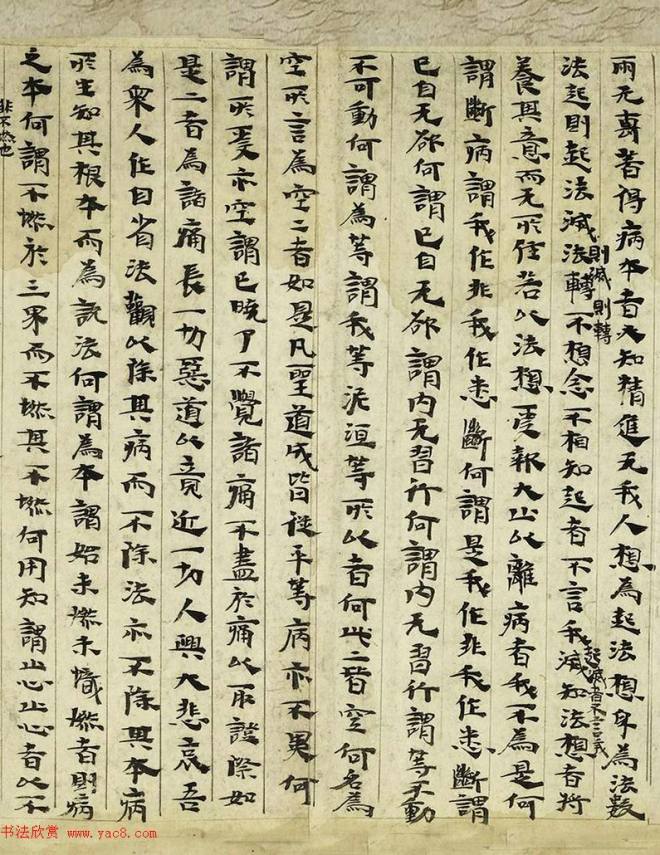 兩无專著得病本者必知精進无我人想為起法想身為法數
法起則起法滅則滅法轉則轉不想念不相知起者不言我起滅者不言我滅知法想者將
養其意而无所住若以法想受報大止以離病者我不為是何
謂斷病謂我作非我作悉斷何謂是我作非我作悉斷謂
已自无欲何謂已自无欲謂内无習行何謂内无習行謂等不動
不可動何謂為等謂我等泥洹等所以者何此二皆空何名為
空所言為空二者如是凡聖道成皆從平等病亦不異何
謂所受亦空謂已曉了不覺諸痛不盡於痛以取證際如
是二者為諸痛長一切惡道以竟近一切人興大悲哀吾
為眾人作自省法觀以除其病而不除法亦不除其本病
所生知其根本而為説法何謂為本謂始未然未熾然者則病
之本何謂不然於三界而不然其不然何用知謂止心止心者以不
非不然也
书法欣赏 www.yac8.com